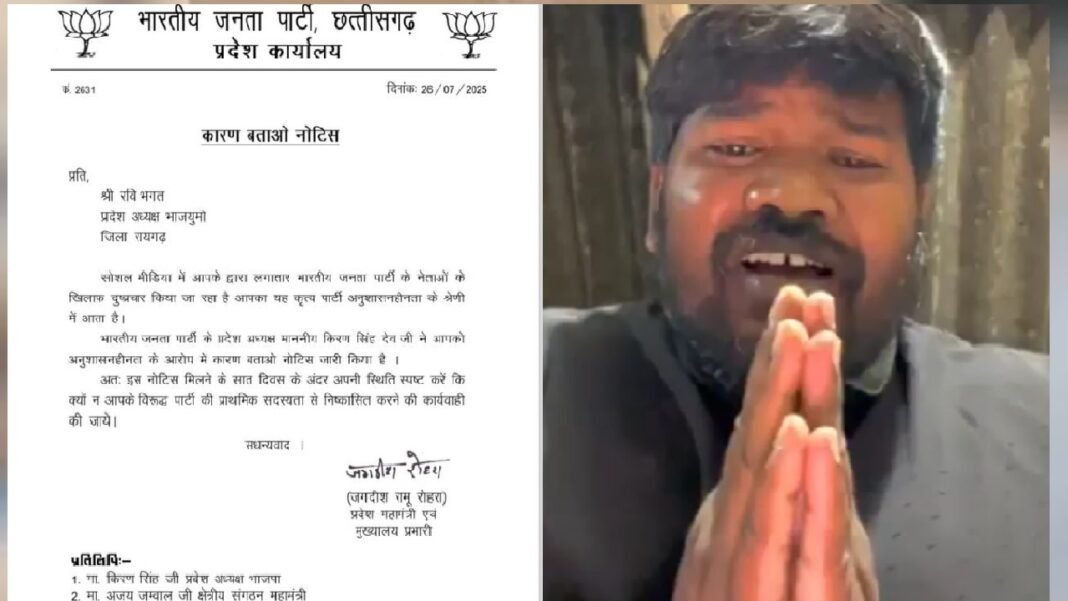 भारतीय जनता पार्टी, छत्तीसगढ़
प्रदेश कार्यालय
कं. 2631
दिनांकः 26/07/2025
कारण बताओ नोटिस
प्रति,
श्री रवि भगत
प्रदेश अध्यक्ष भाजयुमो
जिला रायगढ़
सोशल मीडिया में आपके द्वारा लगातार भारतीय जनता पार्टी के नेताओं के
खिलाफ दुष्प्रचार किया जा रहा है आपका यह कृत्य पार्टी अनुशासनहीनता के श्रेणी
में आता है।
भारतीय जनता पार्टी के प्रदेश अध्यक्ष माननीय किरण सिंह देव जी ने आपको
अनुशासनहीनता के आरोप मे कारण बताओ नोटिस जारी किया है ।
अतः इस नोटिस मिलने के सात दिवस के अंदर अपनी स्थिति स्पष्ट करें कि
क्यों न आपके विरूद्ध पार्टी की प्राथमिक सदस्यता से निष्कासित करने की कार्यवाही
की जाये।
सधन्यवाद ।
जगदीश रोहरा
(जगदीश रामू रोहरा)
प्रदेश महामंत्री एवं
मुख्यालय प्रभारी
प्रतिलिपिः–
1. मा. किरण सिंह जी प्रदेश अध्यक्ष भाजपा
2. मा. अजय जम्वाल जी क्षेत्रीय संगठन महामंत्री